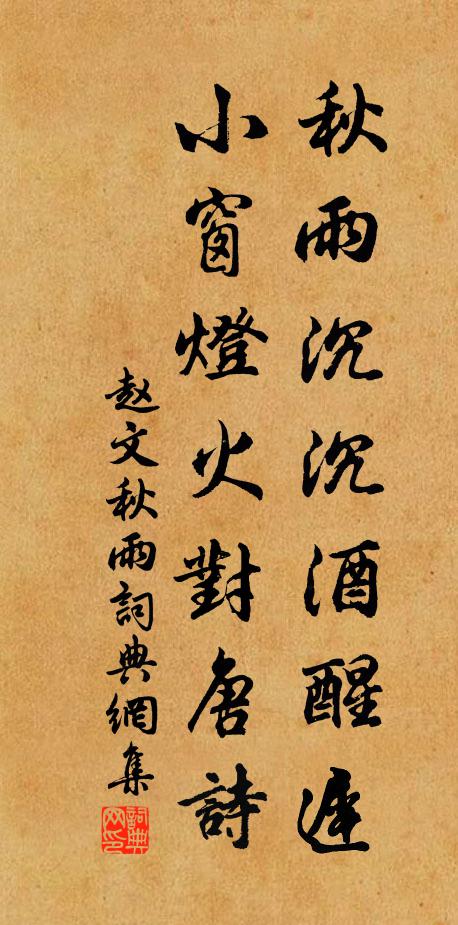 秋雨沉沉酒醒遲
小窗燈火對唐詩
赵文秋雨詞典網集
詞典网印